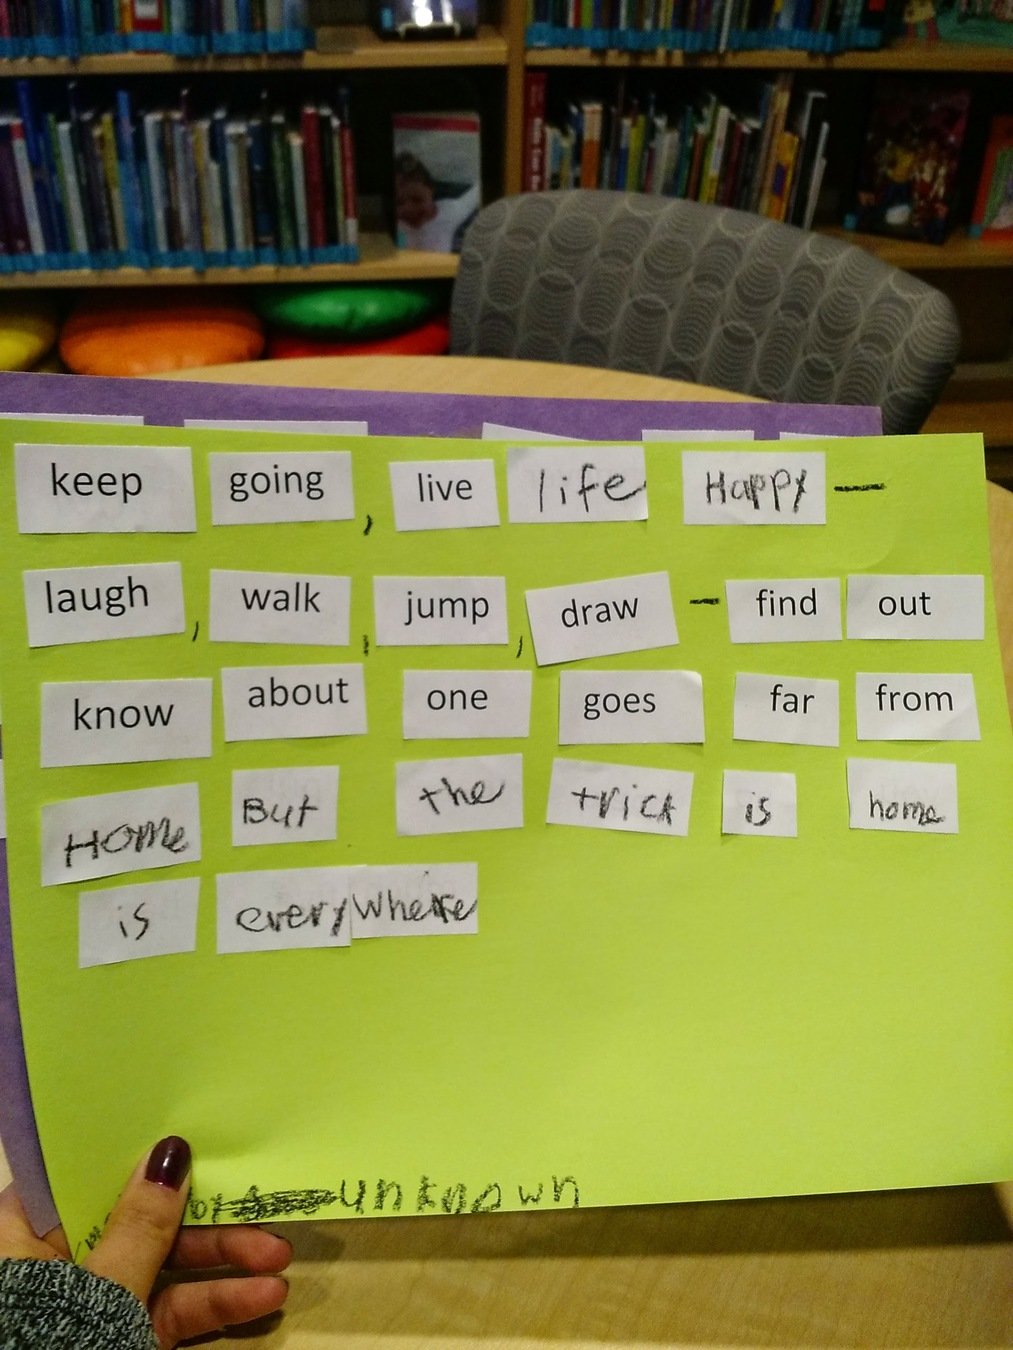 keep going, live life Happy -
laugh, walk, jump, draw - find out
know about one goes far from
HOME But the trick is home
is everywhere
unknown